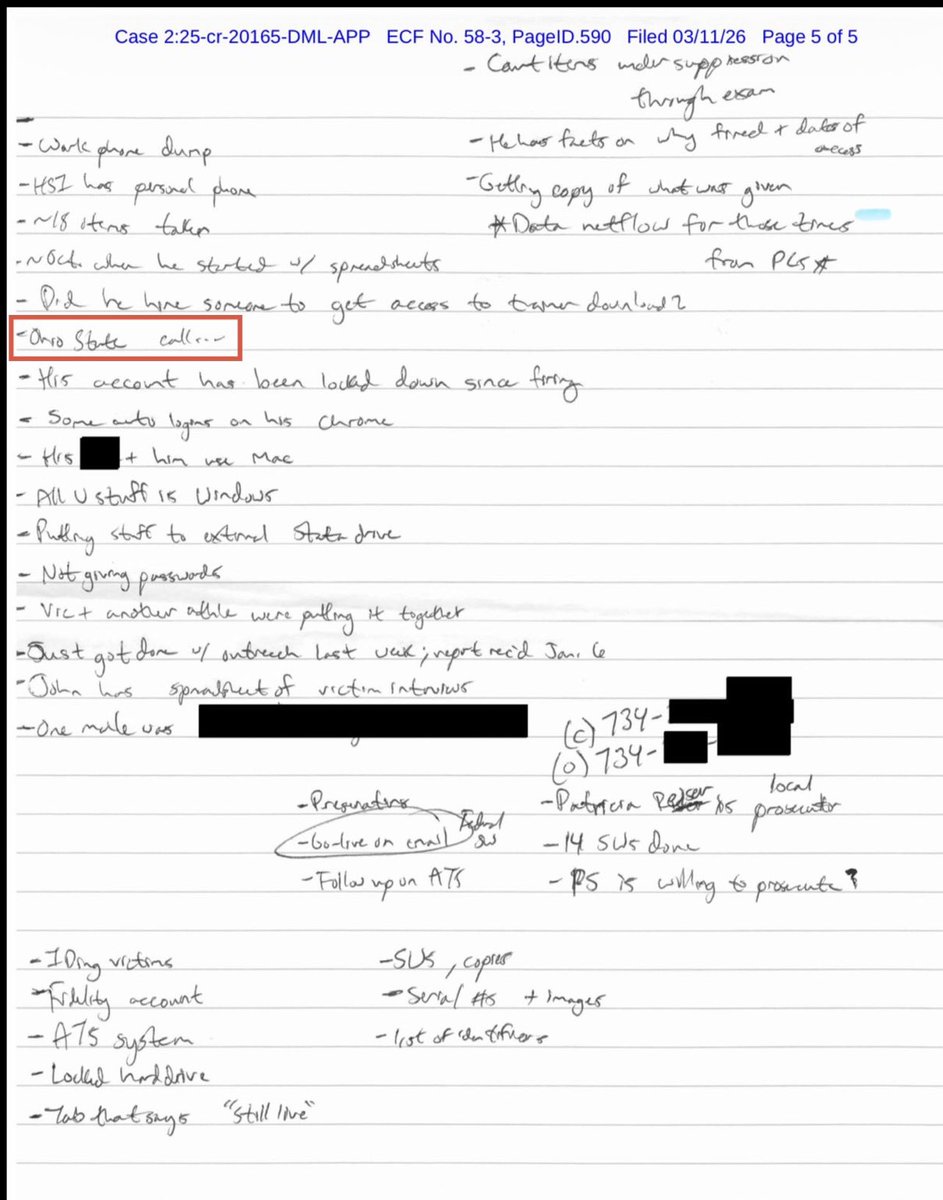 Case 2:25-cr-20165-DML-APP ECF No. 58-3, PageID.590 Filed 03/11/26 Page 5 of 5
- Cant items under suppression
through exam
- Work phone dump
- He has facts on why fired + dates of
access
- HSI has personal phone
- Getting copy of what was given
- ~18 items taken
* Data netflow for those times
from PCs *
- ~ Oct. when he started w/ spreadsheets
- Did he hire someone to get access to trainer download?
- Ohio State call...
- His account has been locked down since firing
- Some auto logins on his Chrome
- His + him use Mac
- All U stuff is Windows
- Putting stuff to external drive
- Not giving passwords
- Vic + another were putting it together
- Just got done w/ outreach last week; report rec'd Jan. 6
- John has spreadsheet of victim interviews
- One male was
(c) 734-
(o) 734- -
- Preservations
- Patricia is local
prosecutor
- Go-live on email Federal
SW
- 14 SWs done
- Follow up on ATS
- PS is willing to prosecute?
- IDing victims
- SWs, copies
- Fidelity account
- Serial #s + images
- ATS system
- list of identifiers
- Locked hard drive
- Tab that says "still live"